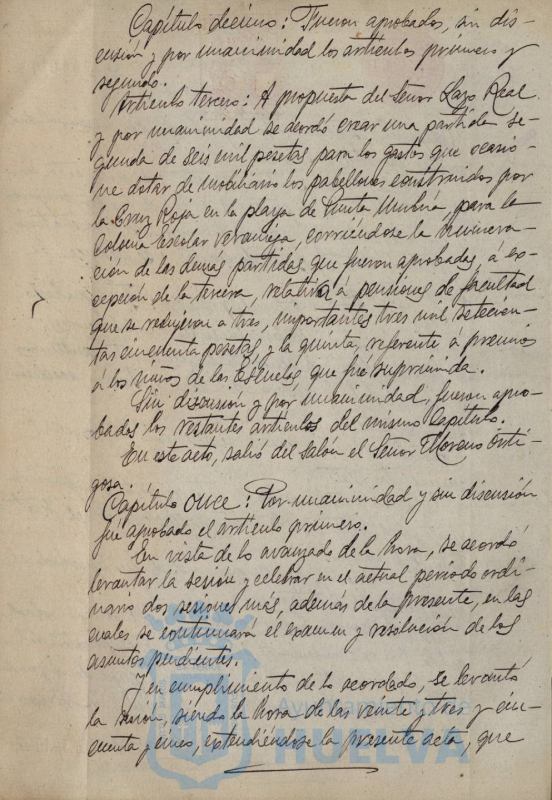 Capítulo decimo: Fueron aprobados, sin dis-
cusión y por unanimidad los artículos primero y
segundo.
Artículo tercero: A propuesta del Señor Lazo Real
y por unanimidad se acordó crear una partida se-
gunda de seis mil pesetas para los gastos que ocasio-
ne dotar de mobiliario los pabellones construidos por
la Cruz Roja en la playa de Punta Umbria, para la
Colonia Escolar veraniega, corriéndose la numera-
ción de las demás partidas que fueron aprobadas, á ex-
cepción de la tercera, relativa á pensiones de facultad
que se redujeron á tres, importantes tres mil setecien-
tas cincuenta pesetas y la quinta, referente á premios
á los niños de las Escuelas, que fué suprimida.
Sin discusión y por unanimidad, fueron apro-
bados los restantes artículos del mismo Capítulo.
En este acto, salió del Salón el Señor Moreno Orti-
gosa.
Capítulo once: Por unanimidad y sin discusión
fué aprobado el artículo primero.
En vista de lo avanzado de la hora, se acordó
levantar la sesión y celebrar en el actual periodo ordi-
nario dos sesiones más, además de la presente, en las
cuales se continuará el examen y resolución de los
asuntos pendientes.
Y en cumplimiento de lo acordado, se levantó
la sesión, siendo la hora de las veinte y tres y cin-
cuenta y cinco, extendiéndose la presente acta, que
Ayuntamiento de
HUELVA